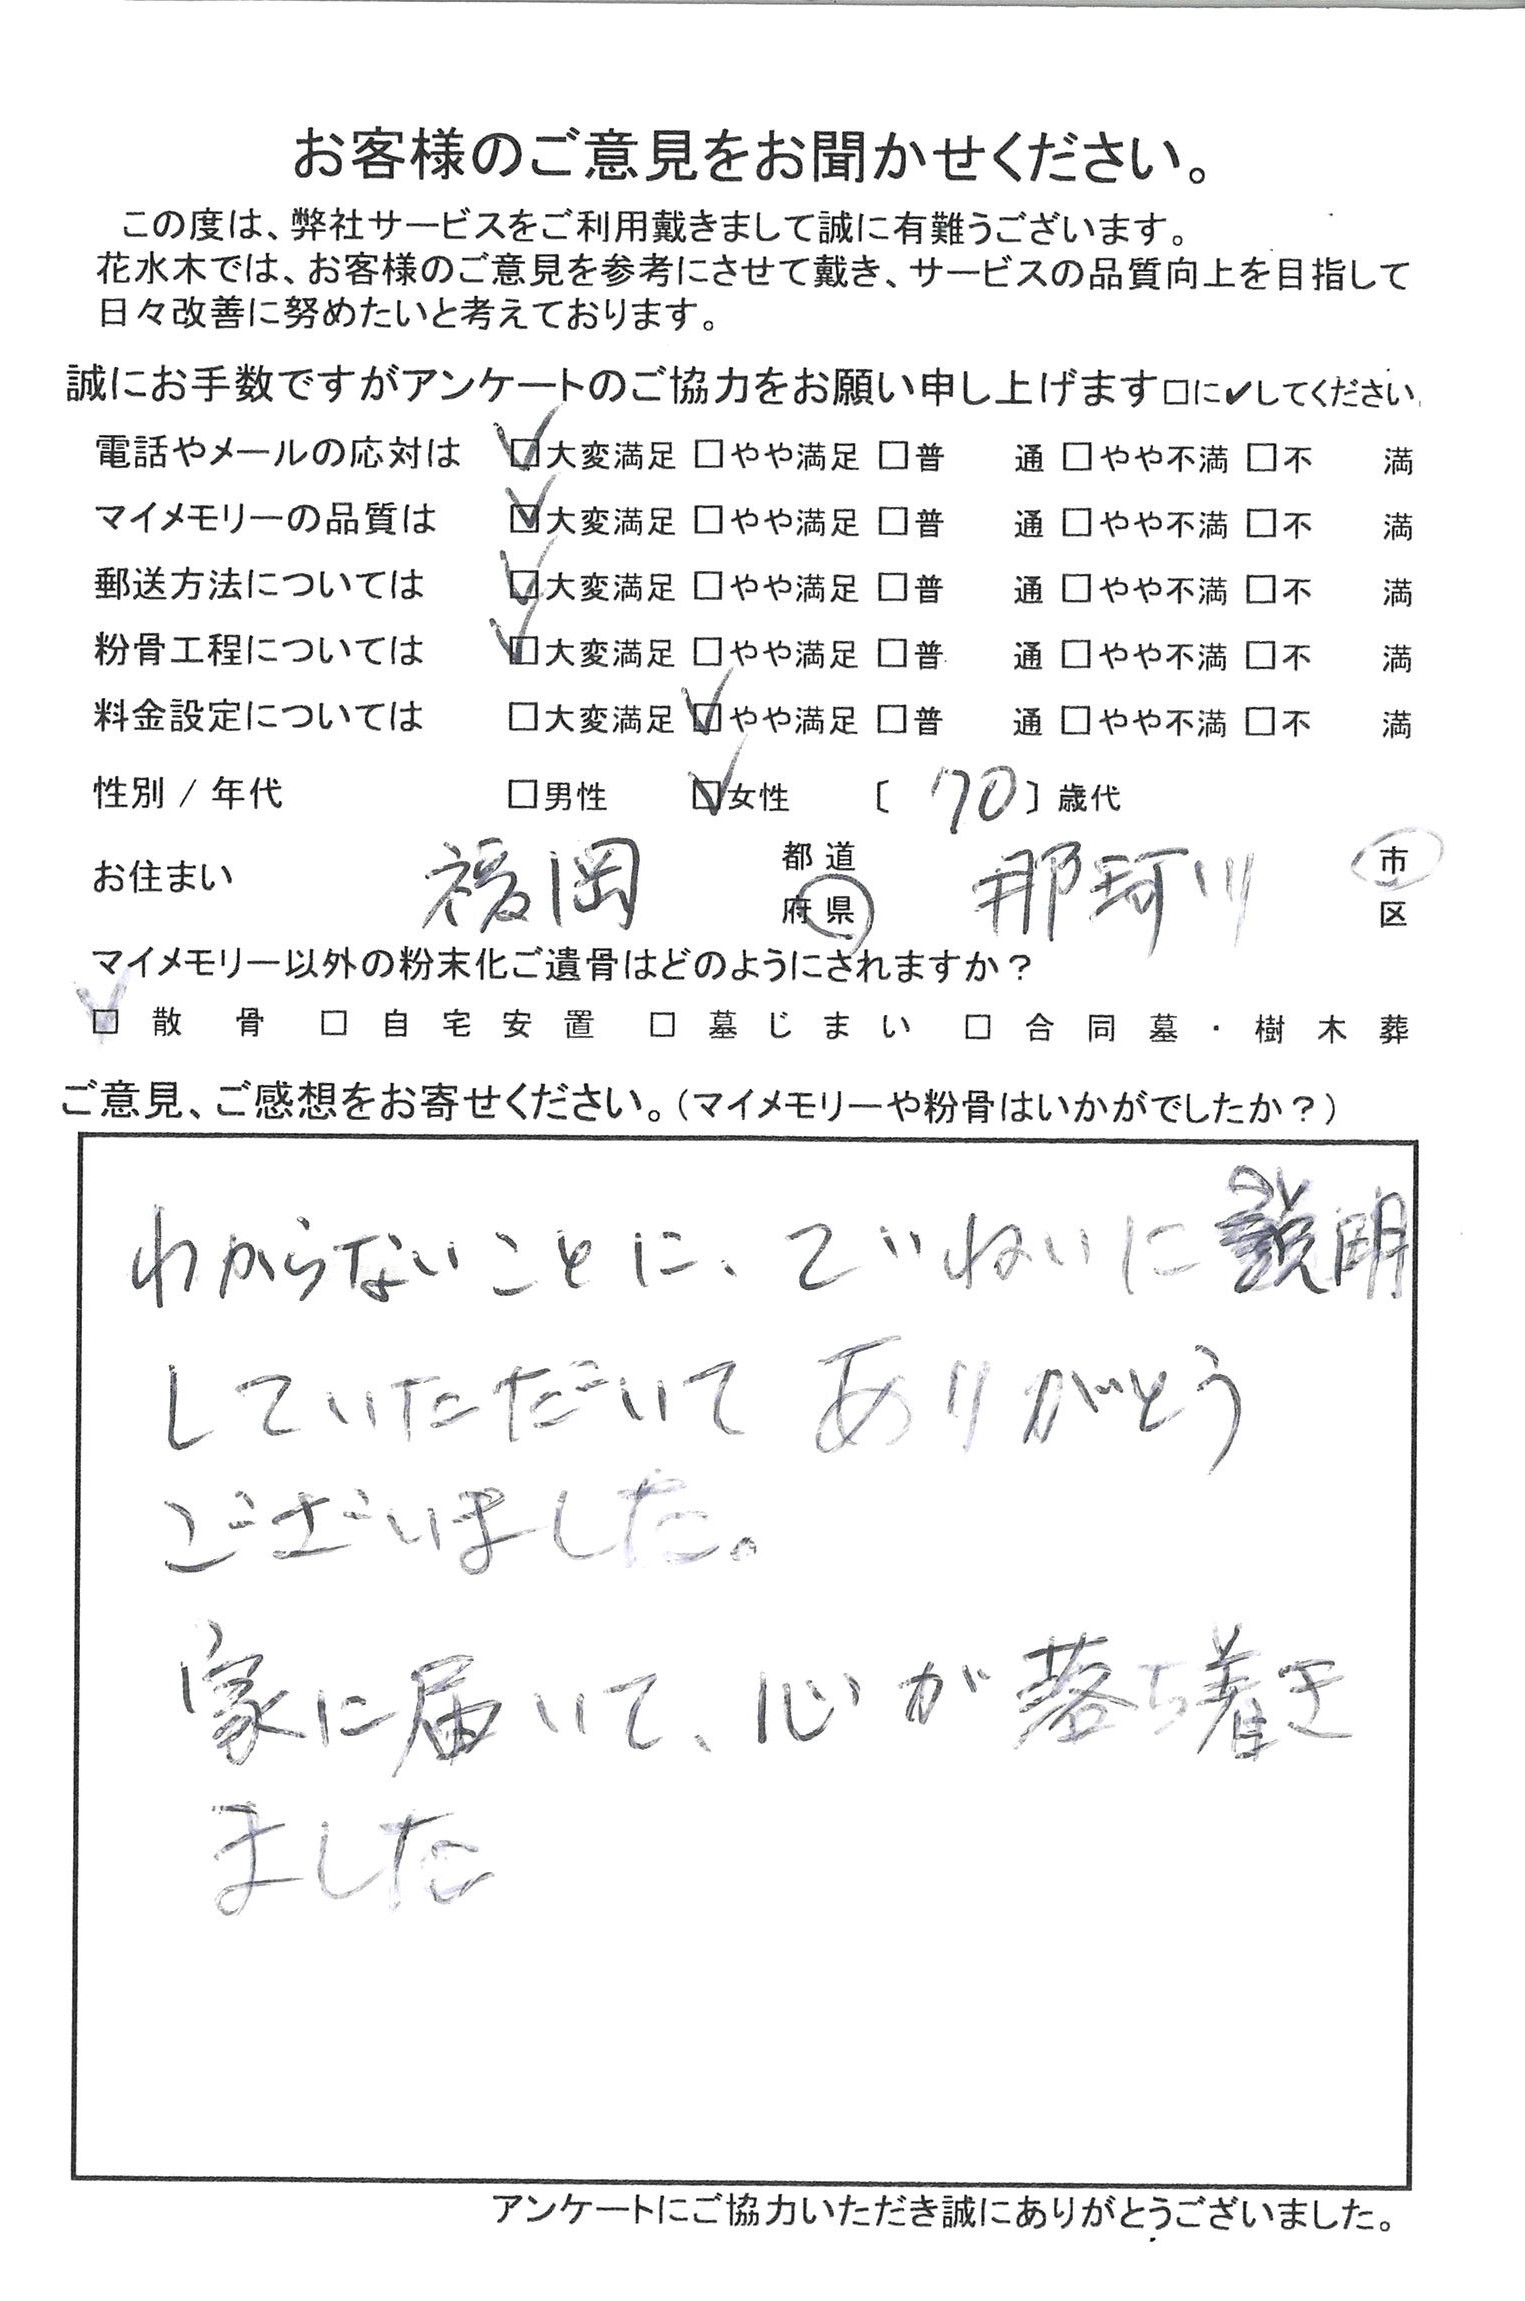 お客様のご意見をお聞かせください。
この度は、弊社サービスをご利用戴きまして誠に有難うございます。
花水木では、お客様のご意見を参考にさせて戴き、サービスの品質向上を目指して
日々改善に努めたいと考えております。
誠にお手数ですがアンケートのご協力をお願い申し上げます□に✔してください。
電話やメールの応対は ☑大変満足 □やや満足 □普 通 □やや不満 □不 満
マイメモリーの品質は ☑大変満足 □やや満足 □普 通 □やや不満 □不 満
郵送方法については ☑大変満足 □やや満足 □普 通 □やや不満 □不 満
粉骨工程については ☑大変満足 □やや満足 □普 通 □やや不満 □不 満
料金設定については □大変満足 ☑やや満足 □普 通 □やや不満 □不 満
性別 / 年代 □男性 ☑女性 〔 70 〕歳代
お住まい 福岡 都道府県 那珂川 市区
マイメモリー以外の粉末化ご遺骨はどのようにされますか？
☑ 散骨 □ 自宅安置 □ 墓じまい □ 合同墓・樹木葬
ご意見、ご感想をお寄せください。（マイメモリーや粉骨はいかがでしたか？）
わからないことに、ていねいに説明
していただいて ありがとう
ございました。
家に届いて、心が落ち着き
ました
アンケートにご協力いただき誠にありがとうございました。